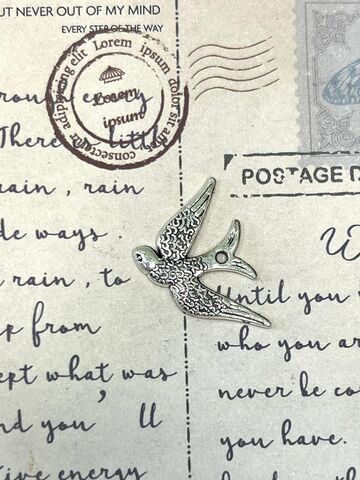 UT NEVER OUT OF MY MIND
EVERY STEP OF THE WAY
Lorem ipsum dolor sit amet consectetur adipiscing elit
Lorem
ipsum
POSTAGE D
energy
There little
ain , rain
de ways .
rain , to
p from
ept what was
nd you' ll
ive energy
W
Until you
who you ar
never be co
you have.